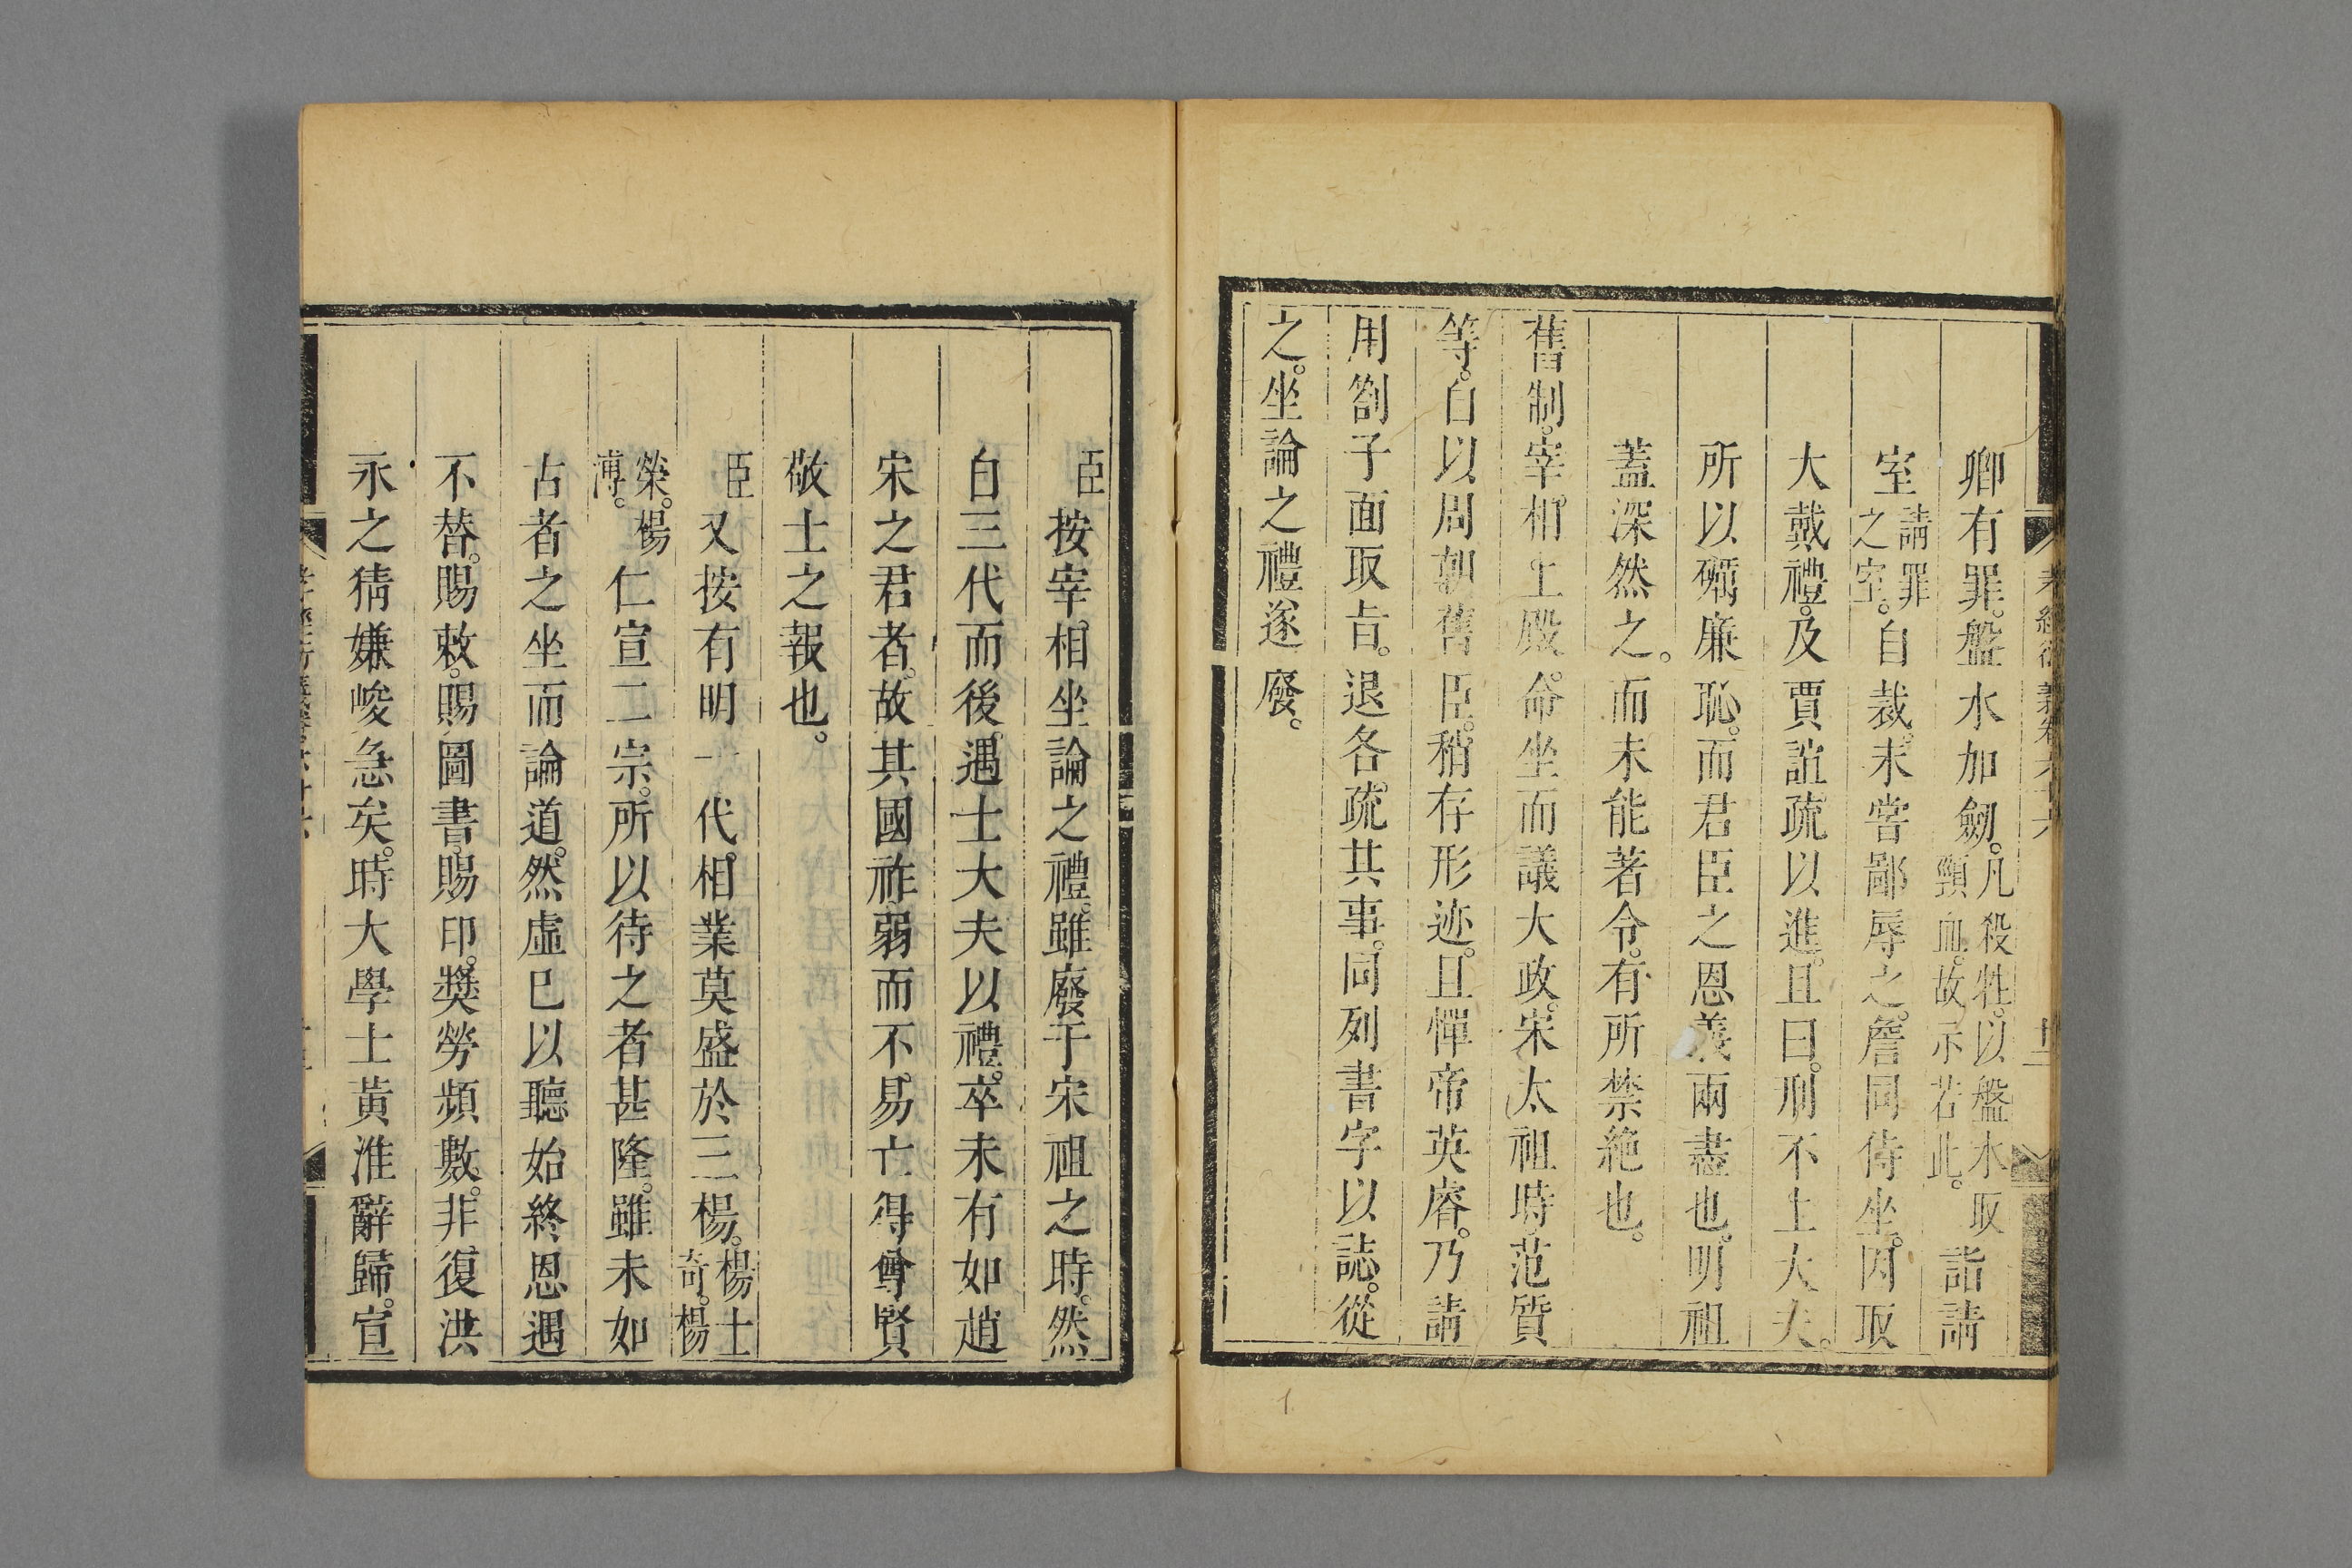 孝經衍義卷六十六
卿有罪。盤水加劒。凡殺牲。以盤水取頸血。故示若此。詣請
室請罪之室。自裁。未嘗鄙辱之。詹同侍坐。因取
大戴禮。及賈誼疏以進。且曰。刑不上大夫。
所以礪廉恥。而君臣之恩義兩盡也。明祖
蓋深然之。而未能著令。有所禁絶也。
舊制。宰相上殿。命坐而議大政。宋太祖時。范質
等。自以周朝舊臣。稍存形迹。且憚帝英睿。乃請
用劄子面取旨。退各疏其事。同列書字以誌。從
之。坐論之禮遂廢。
臣按宰相坐論之禮。雖廢于宋祖之時。然
自三代而後。遇士大夫以禮。卒未有如趙
宋之君者。故其國祚弱而不易亡。得尊賢
敬士之報也。
臣又按有明一代。相業莫盛於三楊。楊士奇。楊
榮。楊溥。仁宣二宗。所以待之者甚隆。雖未如
古者之坐而論道。然虛已以聽。始終恩遇
不替。賜敕。賜圖書。賜印。獎勞頻數。非復洪
永之猜嫌峻急矣。時大學士黃淮辭歸。宣